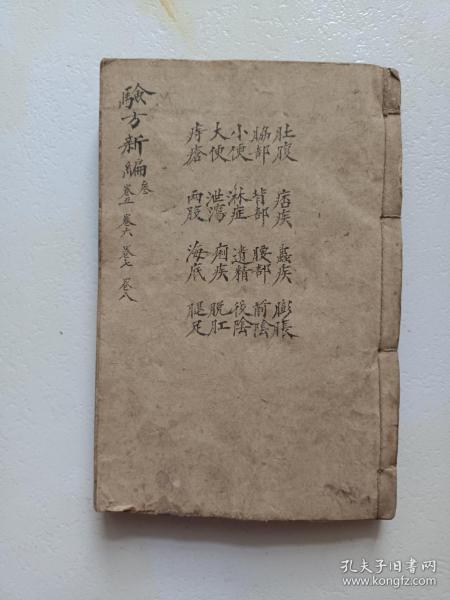 肚腹 痞疾 蠱疾 膨脹
脇部 背部 腰部 前陰
小便 淋症 遺精 後陰
大便 泄瀉 痢疾 脫肛
痔瘡 两股 海底 腿足
驗方新編 叁
卷五 卷六 卷七 卷八
孔夫子旧书网
www.kongfz.com